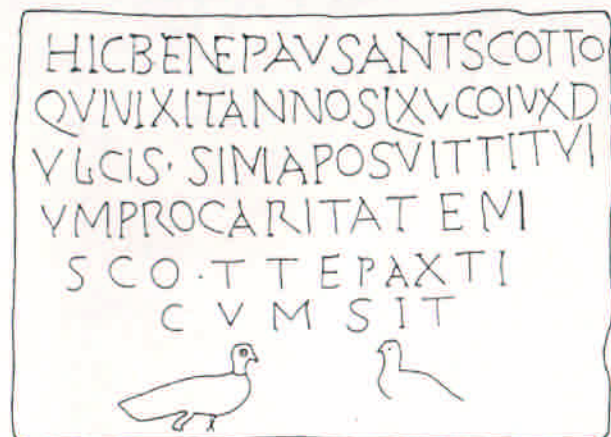 HICBENEPAVSANTSCOTTO
QVIVIXITANNOSLXVCOIVXD
VLCIS· SIMAPOSVITTITVI
VMPROCARITATEM
SCO·TTEPAXTI
CVMSIT